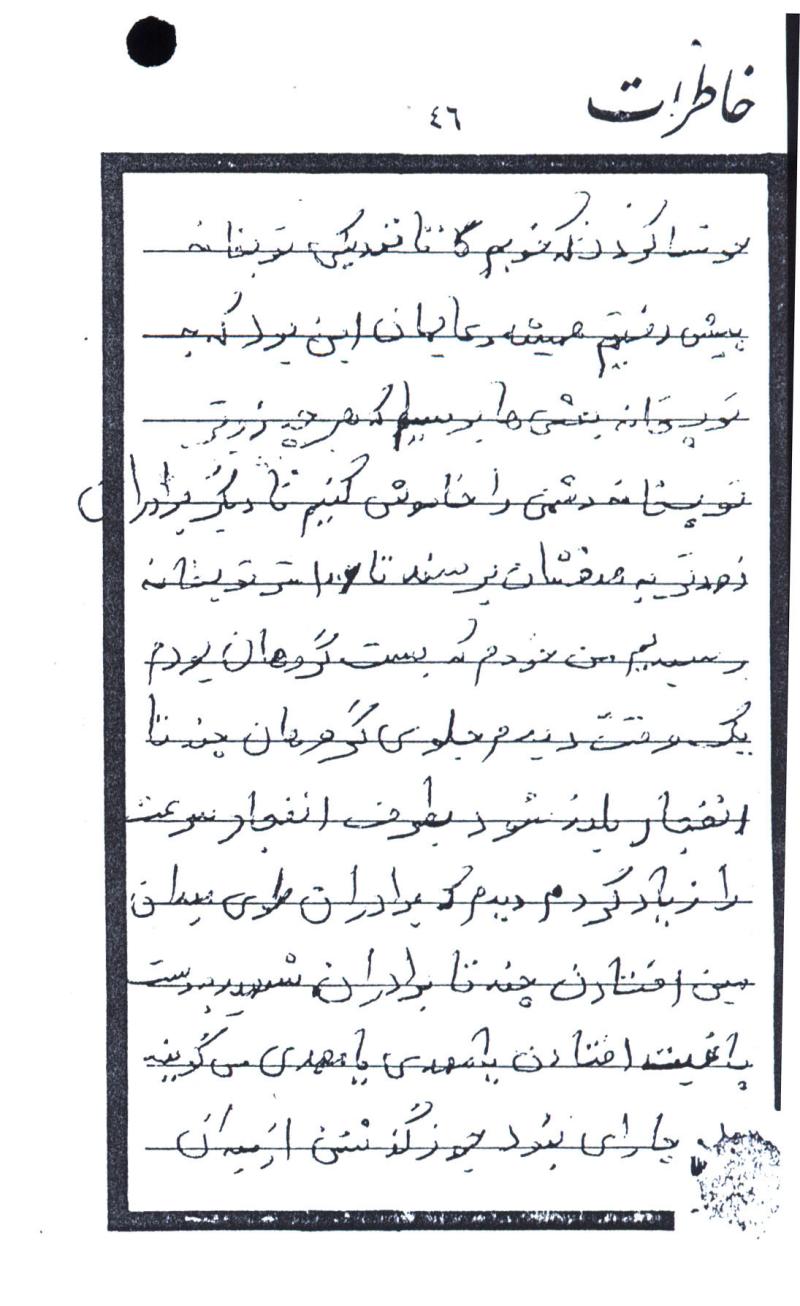 خاطرات
٤٦
که خوبم تا نزدیکی توپخانه
پیش رفتیم همیشه دعایمان این بود که به
توپخانه بعثی ها برسیم که هر چه زودتر
توپخانه دشمن را خاموش کنیم تا دیگر برادران
زودتر به هدفشان برسند تا توپخانه
رسیدیم من خودم که بست گروهان بودم
یک وقت دیدم جلوی گروهان چند تا
انفجار بلند شود بطرف انفجار سرعت
را زیاد کردم دیدم که برادران طوی میدان
مین افتادن چند تا برادران شهید
افتادن یا مهدی یا مهدی می گویند
چارای نبود جوز گذشتن از میدان